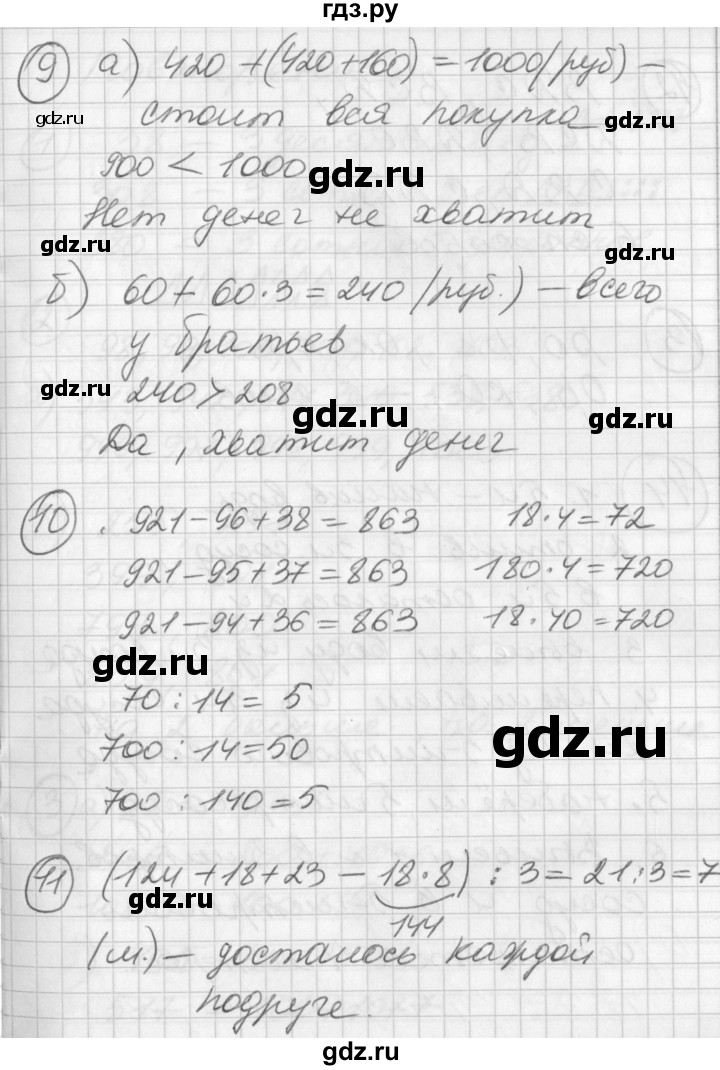 гдз.ру
9 а) 420 + (420 + 160) = 1000 (руб) –
стоит вся покупка
gdz.ru gdz.ru
900 < 1000
gdz.ru
Нет денег не хватит
gdz.ru gdz.ru
б) 60 + 60 · 3 = 240 (руб.) – всего
у братьев
gdz.ru
240 > 208
gdz.ru gdz.ru
Да, хватит денег
10 . 921 – 96 + 38 = 863 18 · 4 = 72
921 – 95 + 37 = 863 180 · 4 = 720
921 – 94 + 36 = 863 18 · 40 = 720
gdz.ru
70 : 14 = 5
700 : 14 = 50
gdz.ru
700 : 140 = 5
11 (124 + 18 + 23 – 18 · 8) : 3 = 21 : 3 = 7
gdz.ru
144
(м.) – досталось каждой
gdz.ru gdz.ru
подруге.
gdz.ru